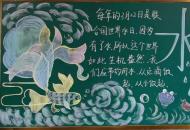 每年的3月22日是联
合国世界水日，因为
有了水所以这个世界
如此生机盎然，我
们应节约用水，从点滴做
起，从小做起
水